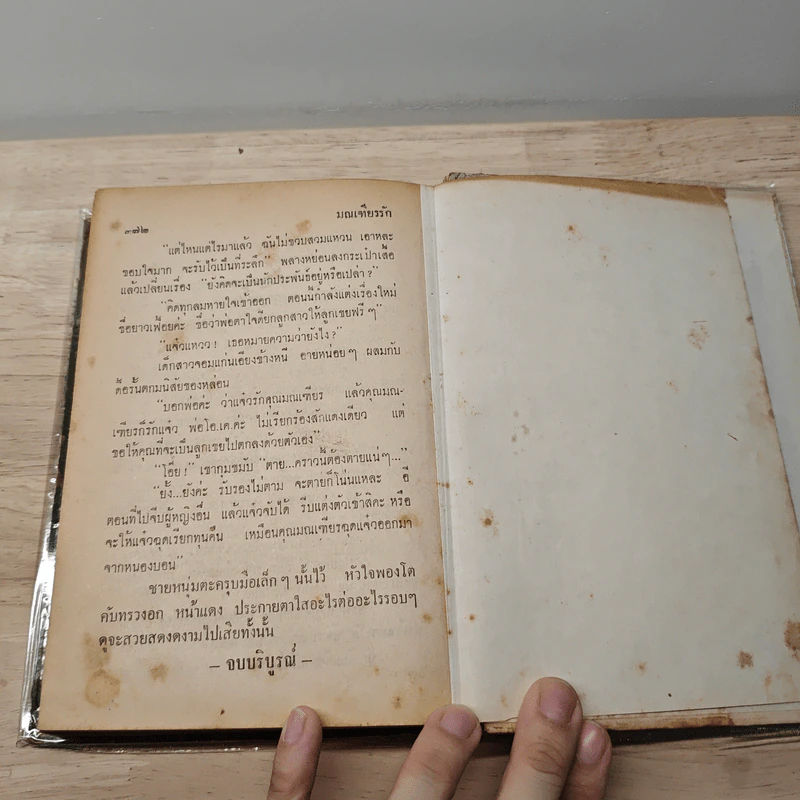 มณเฑียรรัก
๓๗๒
"แต่ไหนแต่ไรมาแล้ว ฉันไม่ชวบสวมแหวน เอาหละ
ขอบใจมาก จะรับไว้เป็นที่ระลึก" พลางหย่อนลงกระเป๋าเสื้อ
แล้วเปลี่ยนเรื่อง "ยังคิดจะเป็นนักประพันธ์อยู่หรือเปล่า?"
"คิดทุกลมหายใจเข้าออก ตอนนี้กำลังแต่งเรื่องใหม่
ชื่อยาวเฟื้อยค่ะ ชื่อว่าพ่อตาใจดียกลูกสาวให้ลูกเขยฟรีๆ"
"แจ๋วแหวว! เธอหมายความว่ายังไง?"
เด็กสาวจอมแก่นเอียงข้างหนี อายหน่อยๆ ผสมกับ
ดื้อรั้นตกมนิสัยของหล่อน
"บอกพ่อค่ะ ว่าแจ๋วรักคุณมณเฑียร แล้วคุณมณ-
เฑียรก็รักแจ๋ว พ่อโอ.เค.ค่ะ ไม่เรียกร้องสักแดงเดียว แต่
ขอให้คุณที่จะเป็นลูกเขยไปตกลงด้วยตัวเอง"
"โอ๊ย!" เขากุมขมับ "ตาย...คราวนี้ต้องตายแน่ๆ..."
"ยั้ง...ยังค่ะ รับรองไม่ตาม จะตายก็โน่นแหละ อี
ตอนที่ไปจีบผู้หญิงอื่น แล้วแจ๋วจับได้ รีบแต่งตัวเข้าสิคะ หรือ
จะให้แจ๋วฉุดเรียกทุนคืน เหมือนคุณมณเฑียรฉุดแจ๋วออกมา
จากหนองบอน"
ชายหนุ่มตะครุบมือเล็กๆ นั้นไว้ หัวใจพองโต
คับทรวงอก หน้าแดง ประกายตาใสอะไรต่ออะไรรอบๆ
ดูจะสวยสดงดงามไปเสียทั้งนั้น
– จบบริบูรณ์ –